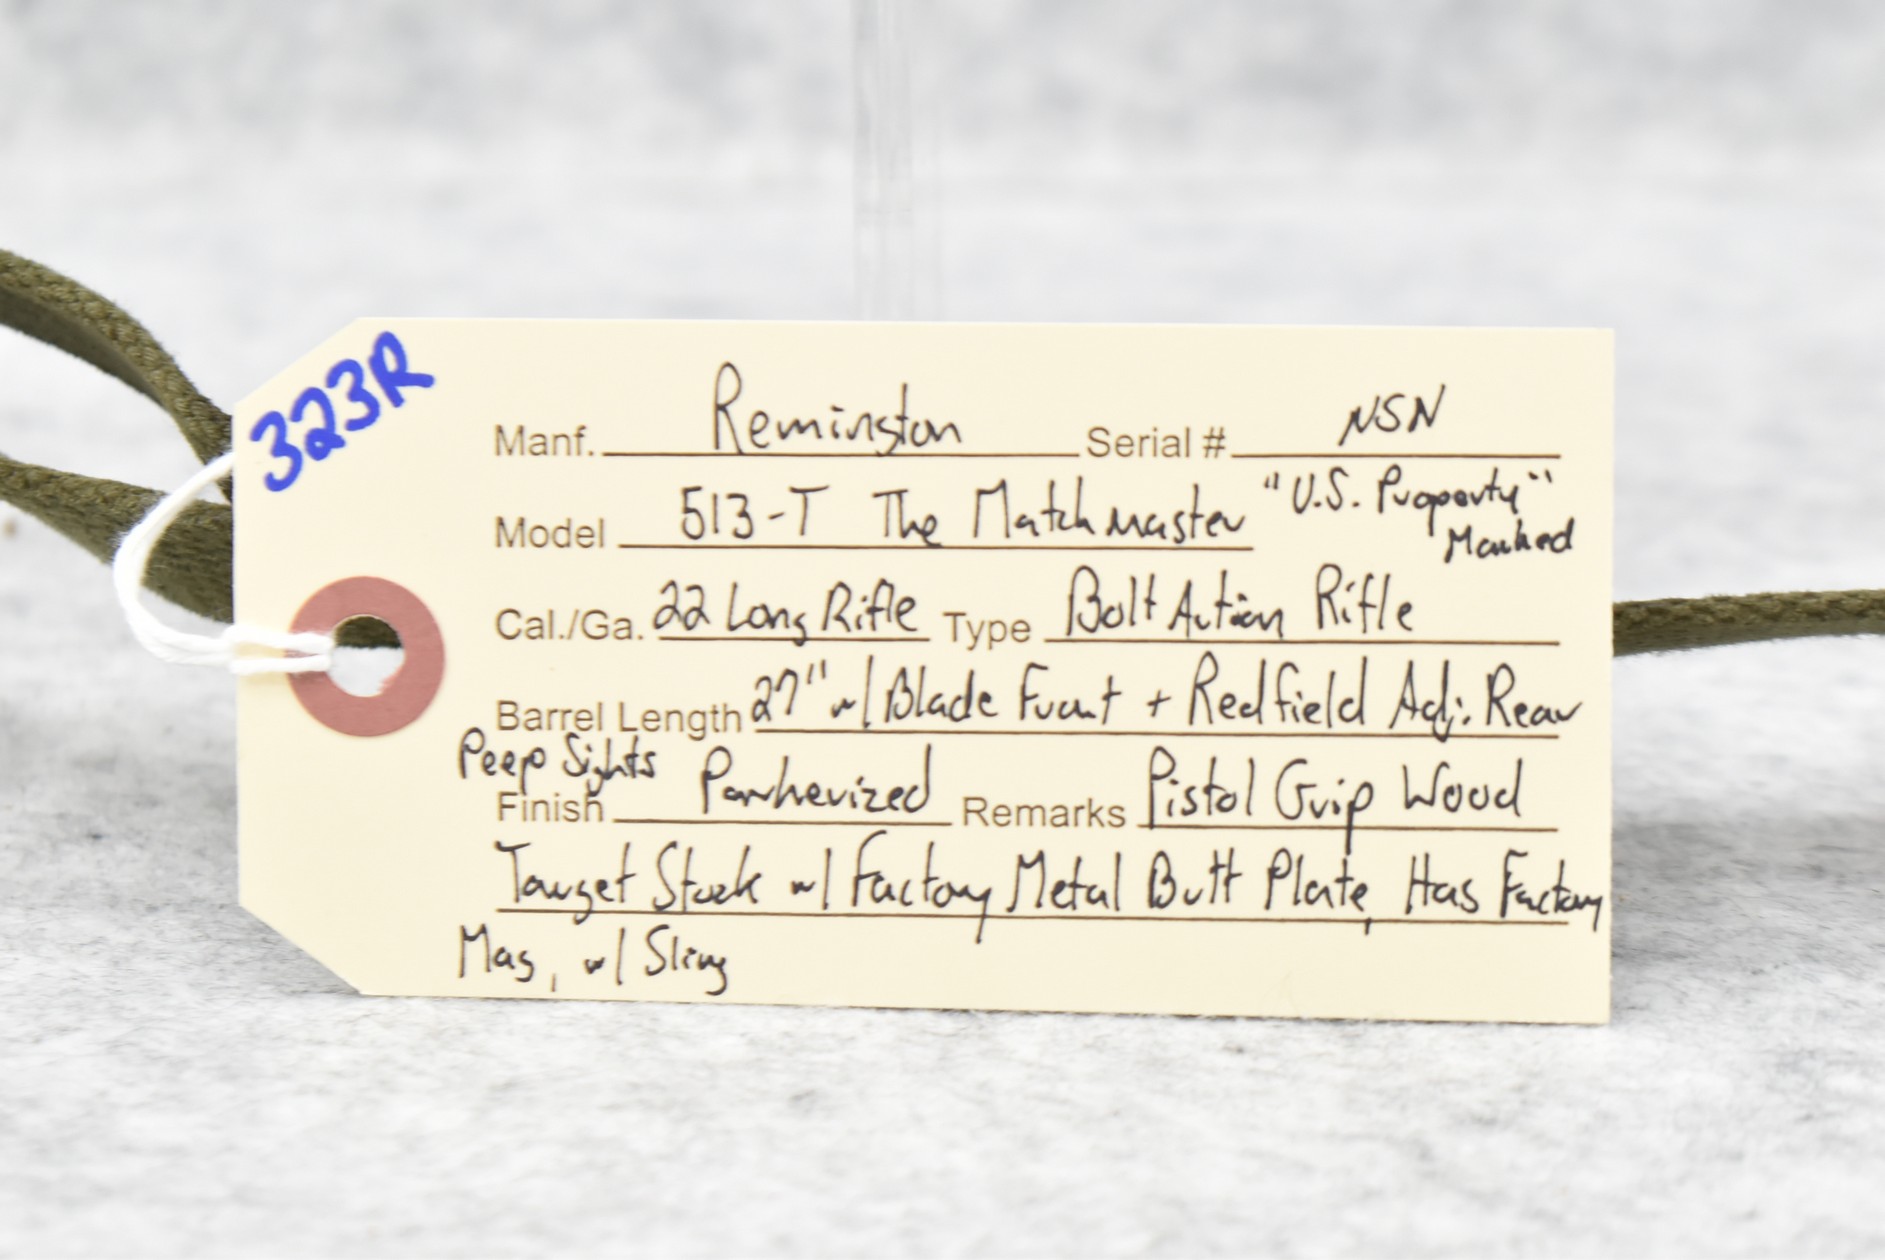 323R
Manf. Remington Serial # NSN
Model 513-T The Matchmaster "U.S. Property"
Marked
Cal./Ga. 22 Long Rifle Type Bolt Action Rifle
Barrel Length 27" w/ Blade Front + Redfield Adj. Rear
Peep Sights
Finish Parkerized Remarks Pistol Grip Wood
Target Stock w/ Factory Metal Butt Plate, Has Factory
Mag, w/ Sling